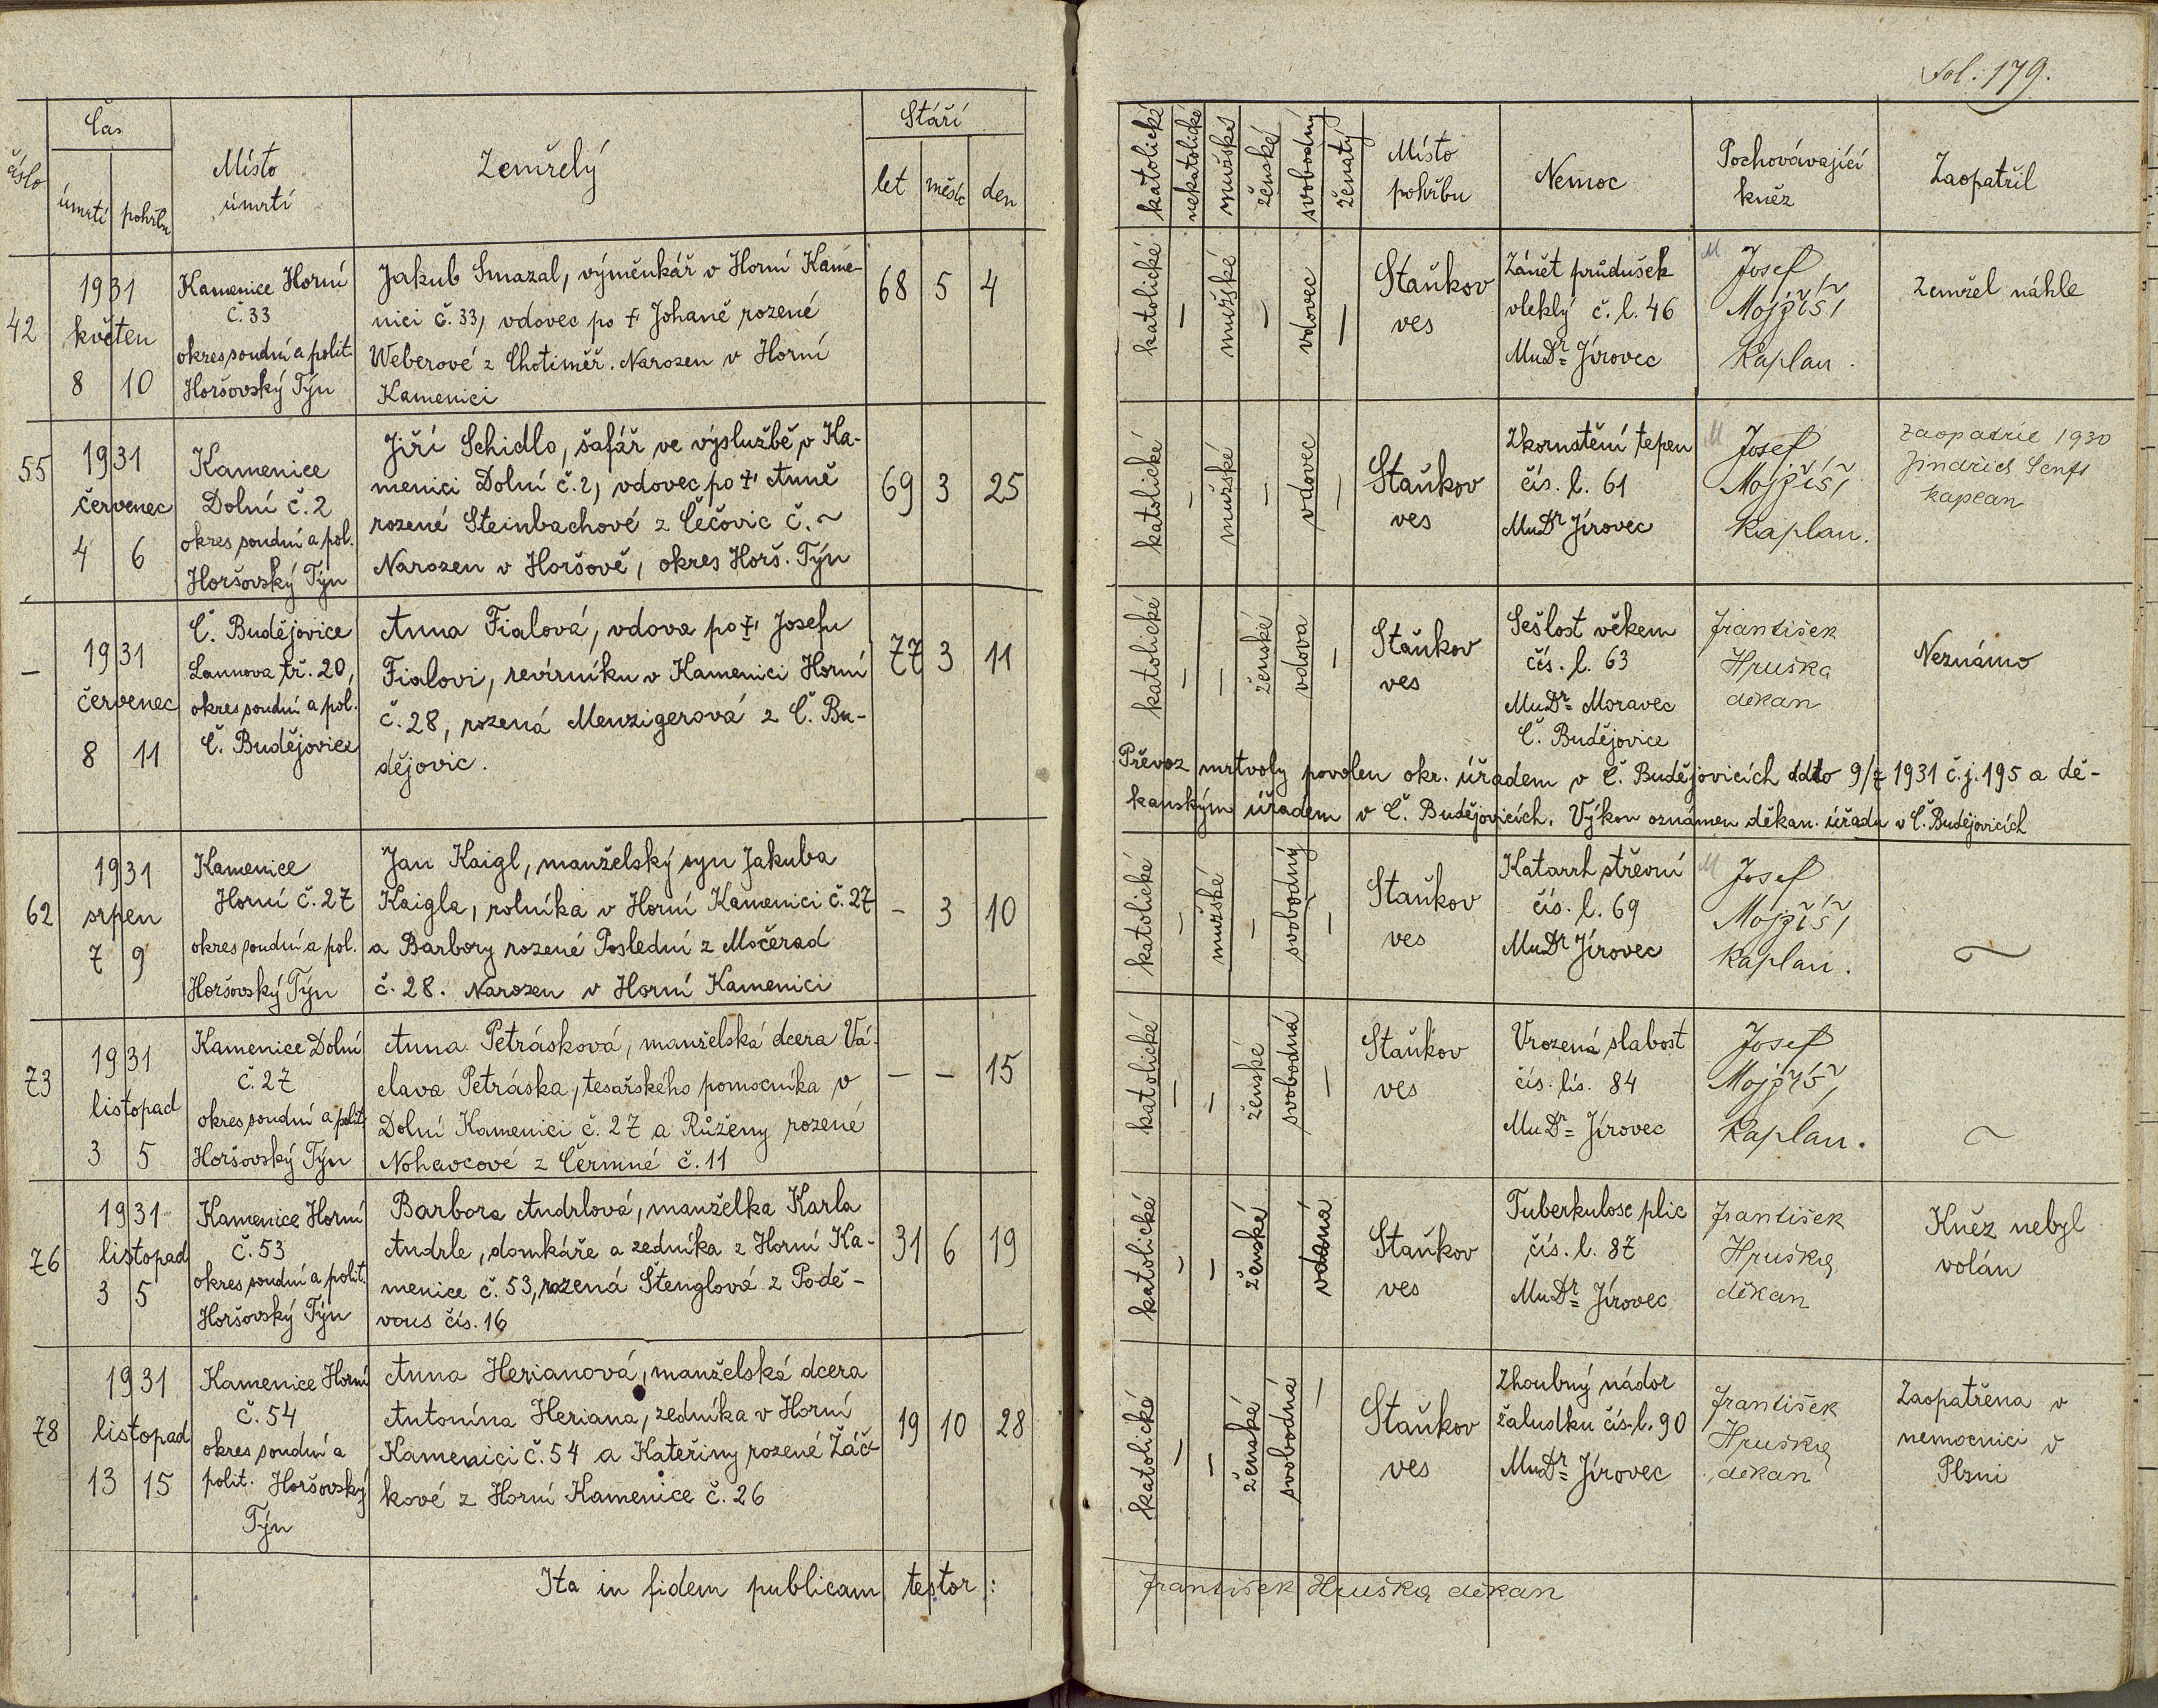 Fol. 179.
číslo
Čas
úmrtí
pohřbu
Místo
úmrtí
Zemřelý
Stáří
let
měsíc
den
katolické
nekatolické
mužské
ženské
svobodný
ženatý
Místo
pohřbu
Nemoc
Pochovávající
kněz
Zaopatřil
42
1931
květen
8 10
Kamenice Horní
č. 33
okres soudní a polit.
Horšovský Týn
Jakub Smazal, výměnkář v Horní Kame-
nici č. 33, vdovec po † Johaně rozené
Weberové z Chotiměř. Narozen v Horní
Kamenici
68 5 4
katolické
–
mužské
–
vdovec
–
Staňkov
ves
Zánět průdušek
vleklý č. l. 46
MuDr. Jírovec
Josef
Mojžíš,
kaplan.
Zemřel náhle
55
1931
červenec
4 6
Kamenice
Dolní č. 2
okres soudní a pol.
Horšovský Týn
Jiří Schidlo, šafář ve výslužbě v Ka-
menici Dolní č. 2, vdovec po † Anně
rozené Steinbachové z Čečovic č. ~
Narozen v Horšově, okres Horš. Týn
69 3 25
katolické
–
mužské
–
vdovec
–
Staňkov
ves
Zkornatění tepen
čís. l. 61
MuDr Jírovec
Josef
Mojžíš,
kaplan.
Zaopatřil 1930
Jindřich Senft
kaplan
–
1931
červenec
8 11
Č. Budějovice
Lannova tř. 20,
okres soudní a pol.
Č. Budějovice
Anna Fialová, vdova po † Josefu
Fialovi, revírníku v Kamenici Horní
č. 28, rozená Menzigerová z Č. Bu-
dějovic.
77 3 11
katolické
–
–
ženské
vdova
–
Staňkov
ves
Sešlost věkem
čís. l. 63
MuDr. Moravec
Č. Budějovice
František
Hruška
děkan
Neznámo
Převoz mrtvoly povolen okr. úřadem v Č. Budějovicích ddto 9/7 1931 č.j. 195 a dě-
kanským úřadem v Č. Budějovicích. Výkon oznámen děkan. úřadu v Č. Budějovicích
62
1931
srpen
7 9
Kamenice
Horní č. 27
okres soudní a pol.
Horšovský Týn
Jan Kaigl, manželský syn Jakuba
Kaigla, rolníka v Horní Kamenici č. 27
a Barbory rozené Poslední z Močerad
č. 28. Narozen v Horní Kamenici
– 3 10
katolické
–
mužské
–
svobodný
–
Staňkov
ves
Katarrh střevní
čís. l. 69
MuDr Jírovec
Josef
Mojžíš,
kaplan.
~
73
1931
listopad
3 5
Kamenice Dolní
č. 27
okres soudní a polit.
Horšovský Týn
Anna Petrásková, manželská dcera Vá-
clava Petráska, tesařského pomocníka v
Dolní Kamenici č. 27 a Růženy rozené
Nohavcové z Čermné č. 11
– – 15
katolické
–
–
ženské
svobodná
–
Staňkov
ves
Vrozená slabost
čís. lis. 84
MuDr. Jírovec
Josef
Mojžíš,
kaplan.
~
76
1931
listopad
3 5
Kamenice Horní
č. 53
okres soudní a polit.
Horšovský Týn
Barbora Andrlová, manželka Karla
Andrle, domkáře a zedníka z Horní Ka-
menice č. 53, rozená Štenglová z Podě-
vous čís. 16
31 6 19
katolické
–
–
ženské
vdaná
Staňkov
ves
Tuberkulose plic
čís. l. 87
MuDr. Jírovec
František
Hruška,
děkan
Kněz nebyl
volán
78
1931
listopad
13 15
Kamenice Horní
č. 54
okres soudní a
polit. Horšovský
Týn
Anna Herianová, manželská dcera
Antonína Heriana, zedníka v Horní
Kamenici č. 54 a Kateřiny rozené Žáč-
kové z Horní Kamenice č. 26
19 10 28
katolické
–
–
ženské
svobodná
–
Staňkov
ves
Zhoubný nádor
žaludku čís. l. 90
MuDr. Jírovec
František
Hruška,
děkan
Zaopatřena v
nemocnici v
Plzni
Ita in fidem publicam testor:
František Hruška, děkan